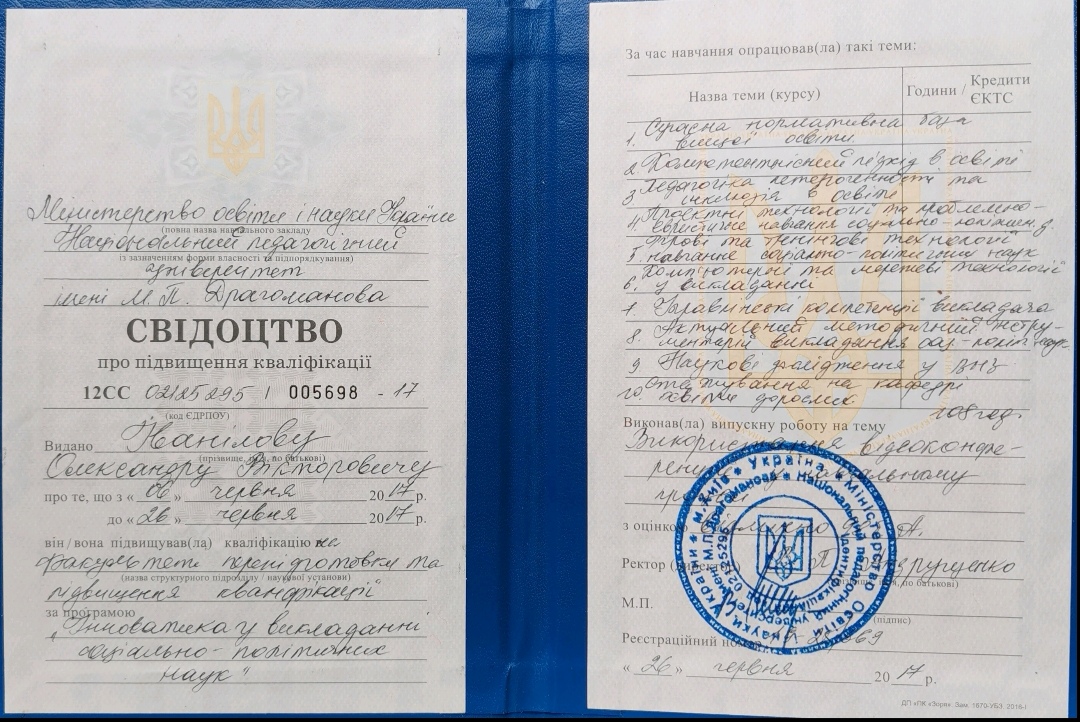 Міністерство освіти і науки України
(повна назва навчального закладу
Національний педагогічний
із зазначенням форми власності та підпорядкування)
університет
імені М.П. Драгоманова
СВІДОЦТВО
про підвищення кваліфікації
12СС 02125295 / 005698 - 17
(код ЄДРПОУ)
Видано
(прізвище, ім'я, по батькові)
Олександру Вікторовичу
про те, що з «06» червня 2017 р.
до «26» червня 2017 р.
він / вона підвищував(ла) кваліфікацію на
факультеті перепідготовки та
(назва структурного підрозділу / наукової установи)
підвищення кваліфікації
за програмою
„Інноватика у викладанні
соціально-політичних
наук"
За час навчання опрацював(ла) такі теми:
Назва теми (курсу) Години / Кредити ЄКТС
1. Сучасна нормативна база
вищої освіти.
2. Компетентнісний підхід в освіті
3. Педагогіка гетерогенності та
інклюзія в освіті
4. Проектні технології та проблемно-
евристичне навчання соціально-політичн. д.
5. Ігрові та тренінгові технології
навчання соціально-політичних наук
6. Комп'ютерні та мережеві технології
у викладанні
7. Управлінські компетенції викладача
8. Актуальний методичний інстру-
ментарій викладання соц.-політ. наук
9. Наукові дослідження у ВНЗ
10. Стажування на кафедрі
освіти дорослих 108 год.
Виконав(ла) випускну роботу на тему
Використання відеоконфе-
ренції у навчальному
з оцінкою відмінно А.
Ректор (директор) В. П. Андрущенко
(прізвище, ім'я, по батькові)
М.П.
(підпис)
Реєстраційний номер
«26» червня 2017 р.
ДП «ПК «Зоря». Зам. 1670-УБЗ. 2016-І
Україна * Міністерство освіти і науки України * м.Київ *
Національний педагогічний університет імені М.П.Драгоманова *
Ідентифікаційний код 02125295